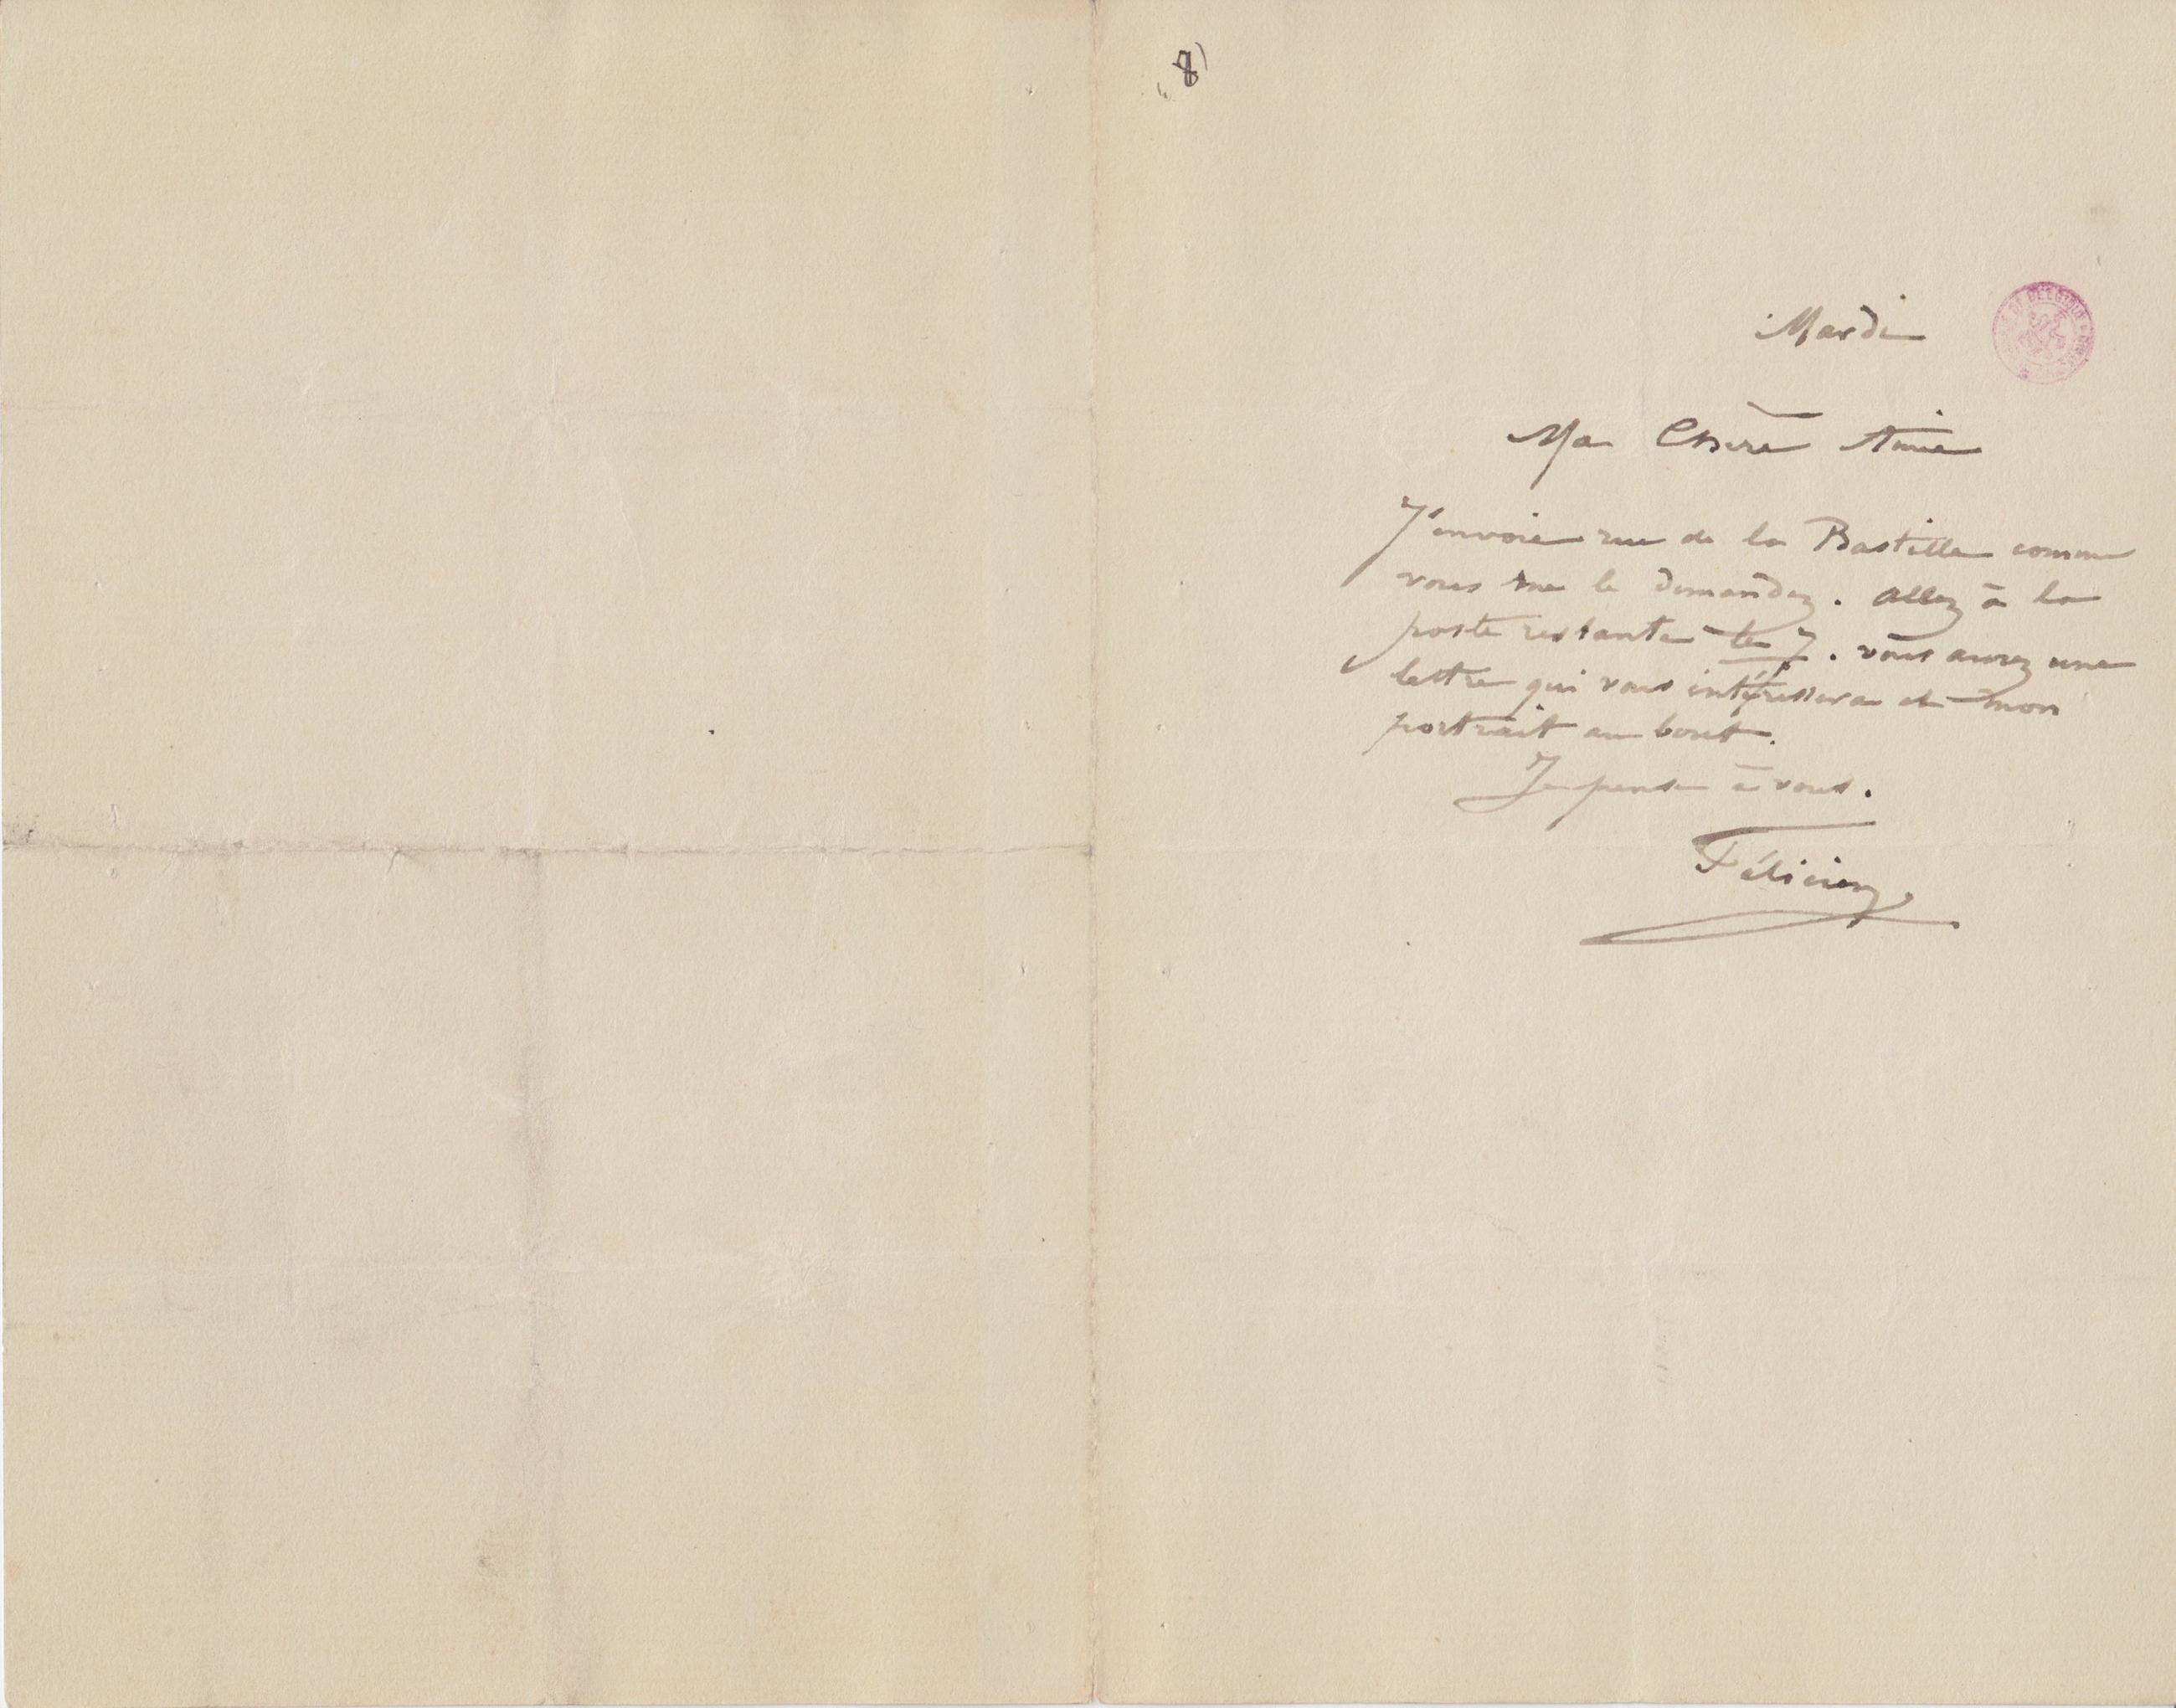 Mardi
Ma Chère Amie
J'envoie rue de la Bastille comme
vous me le demandez. Allez à la
poste restante le 7. vous aurez une
lettre qui vous intéressera et mon
portrait au bout.
Je pense à vous.
Félicien